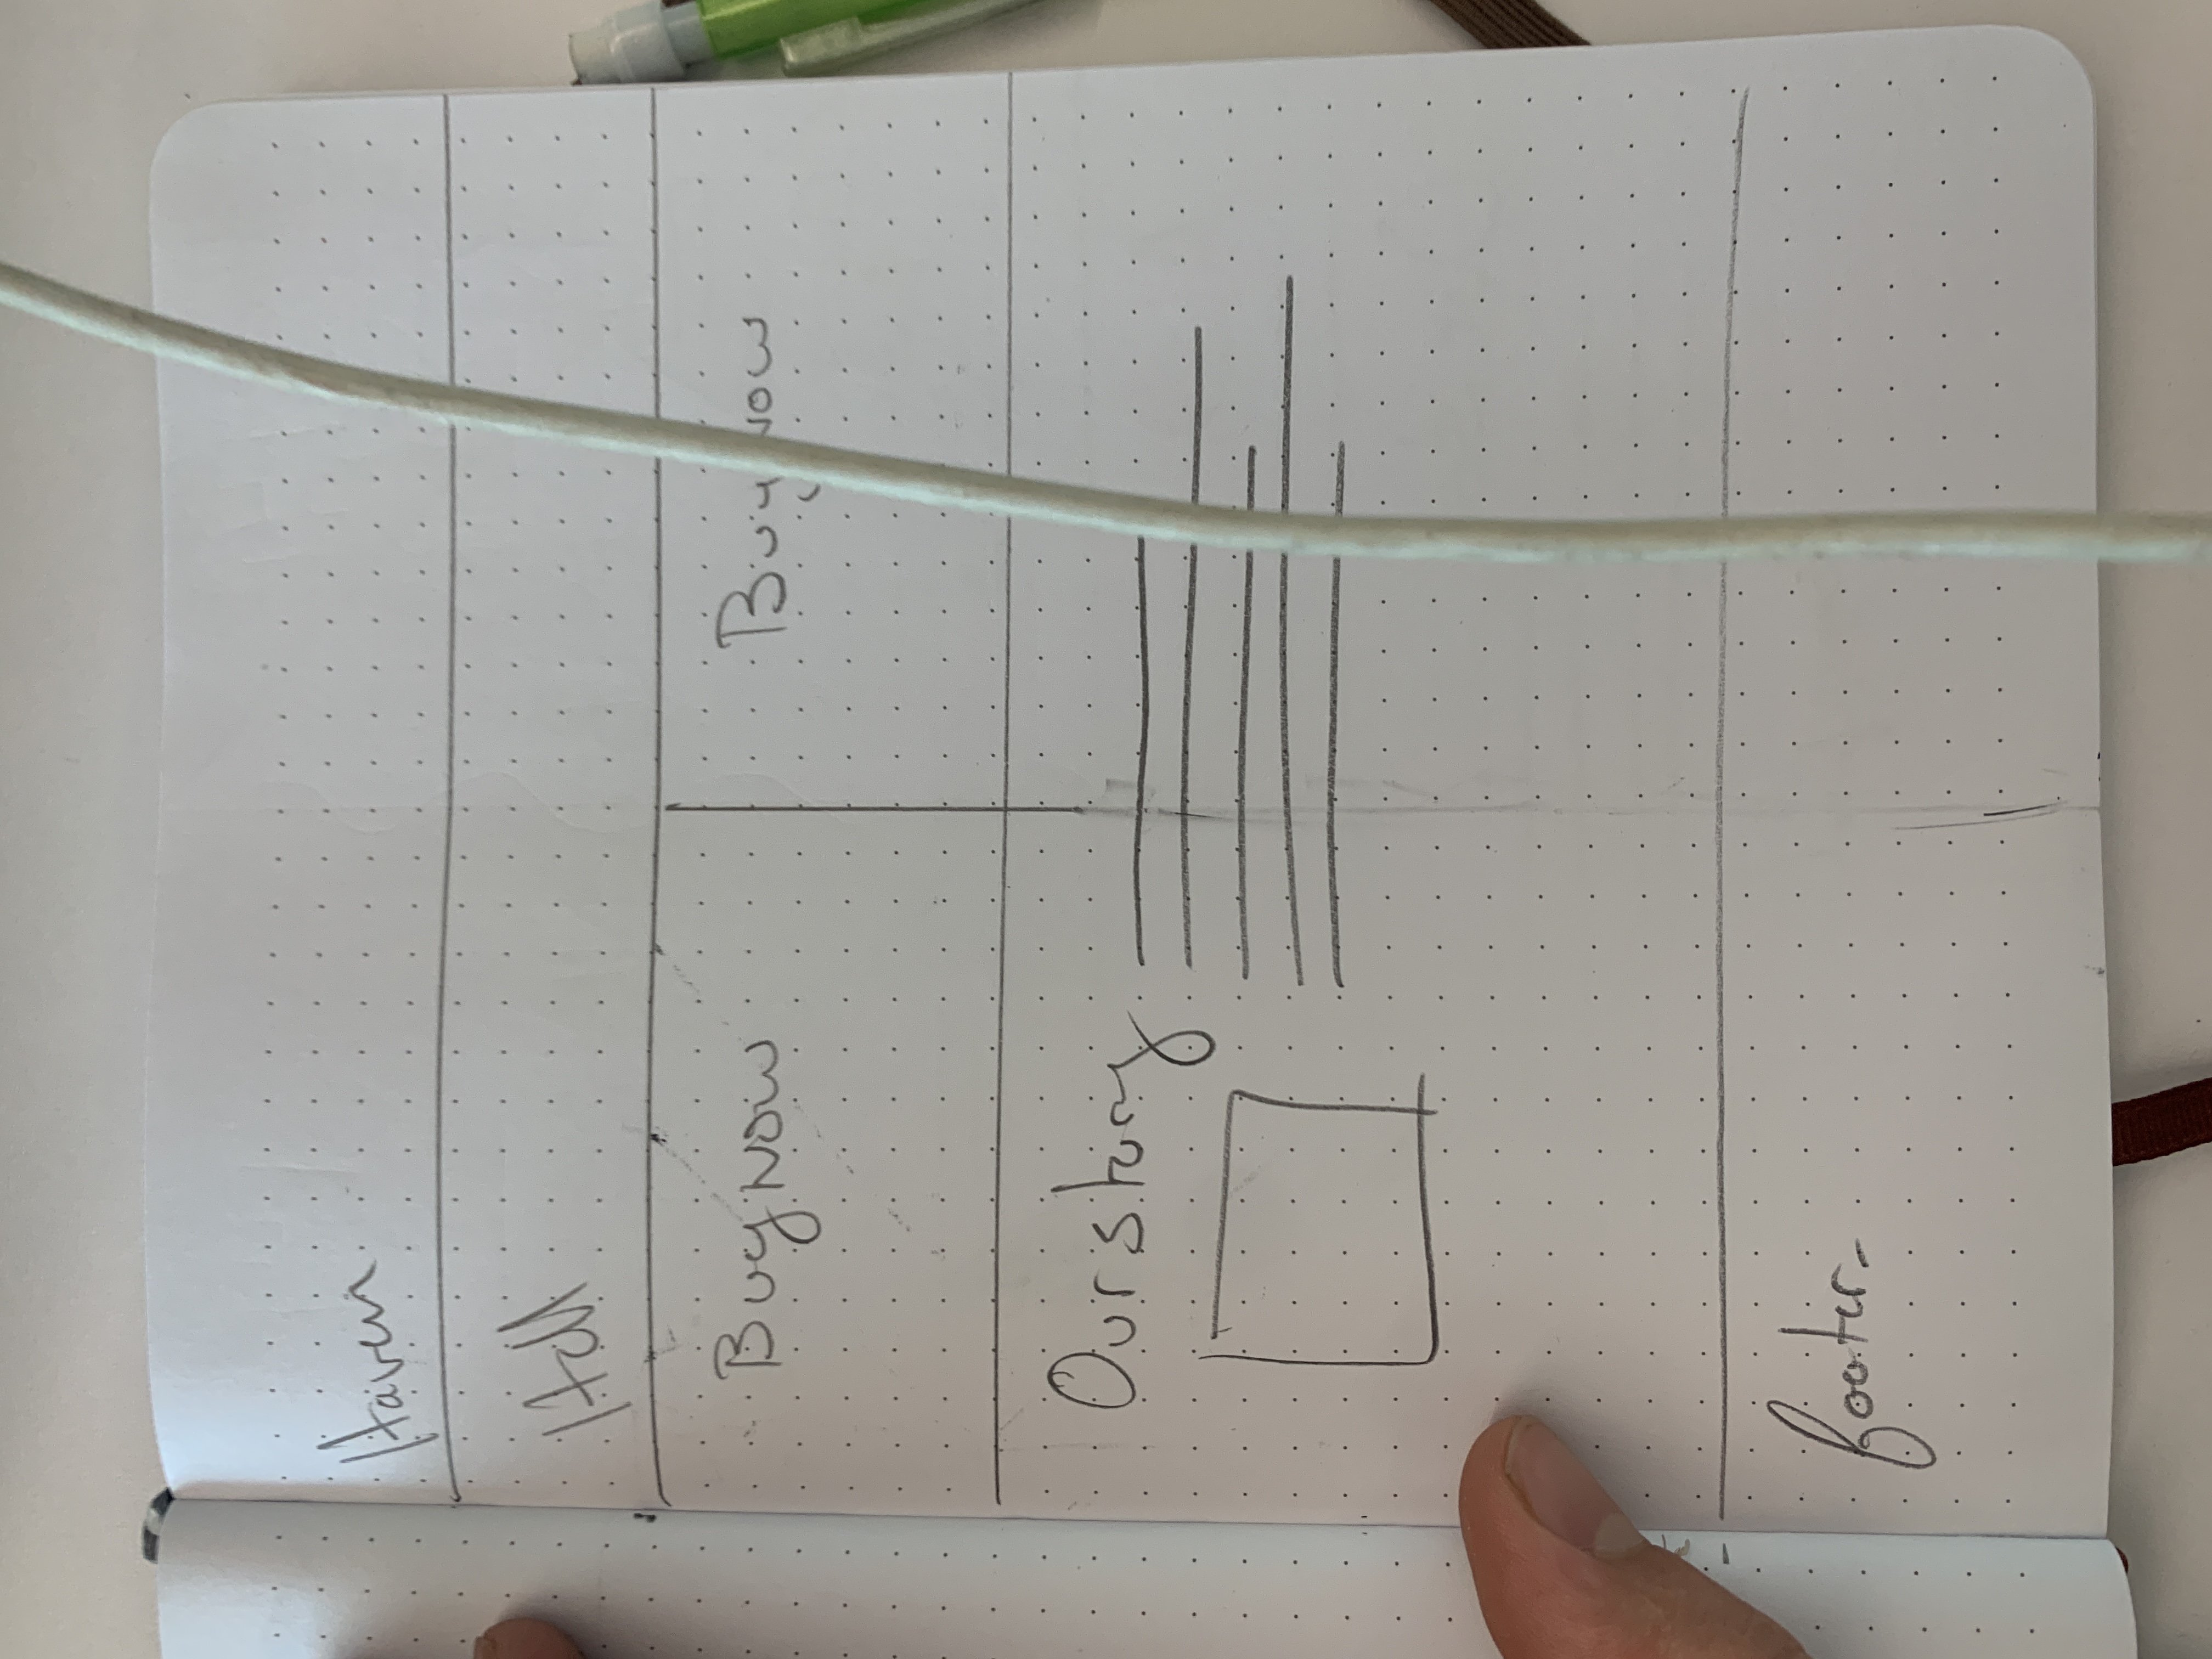 Haven
Buy now
Buy now
Our story
footer